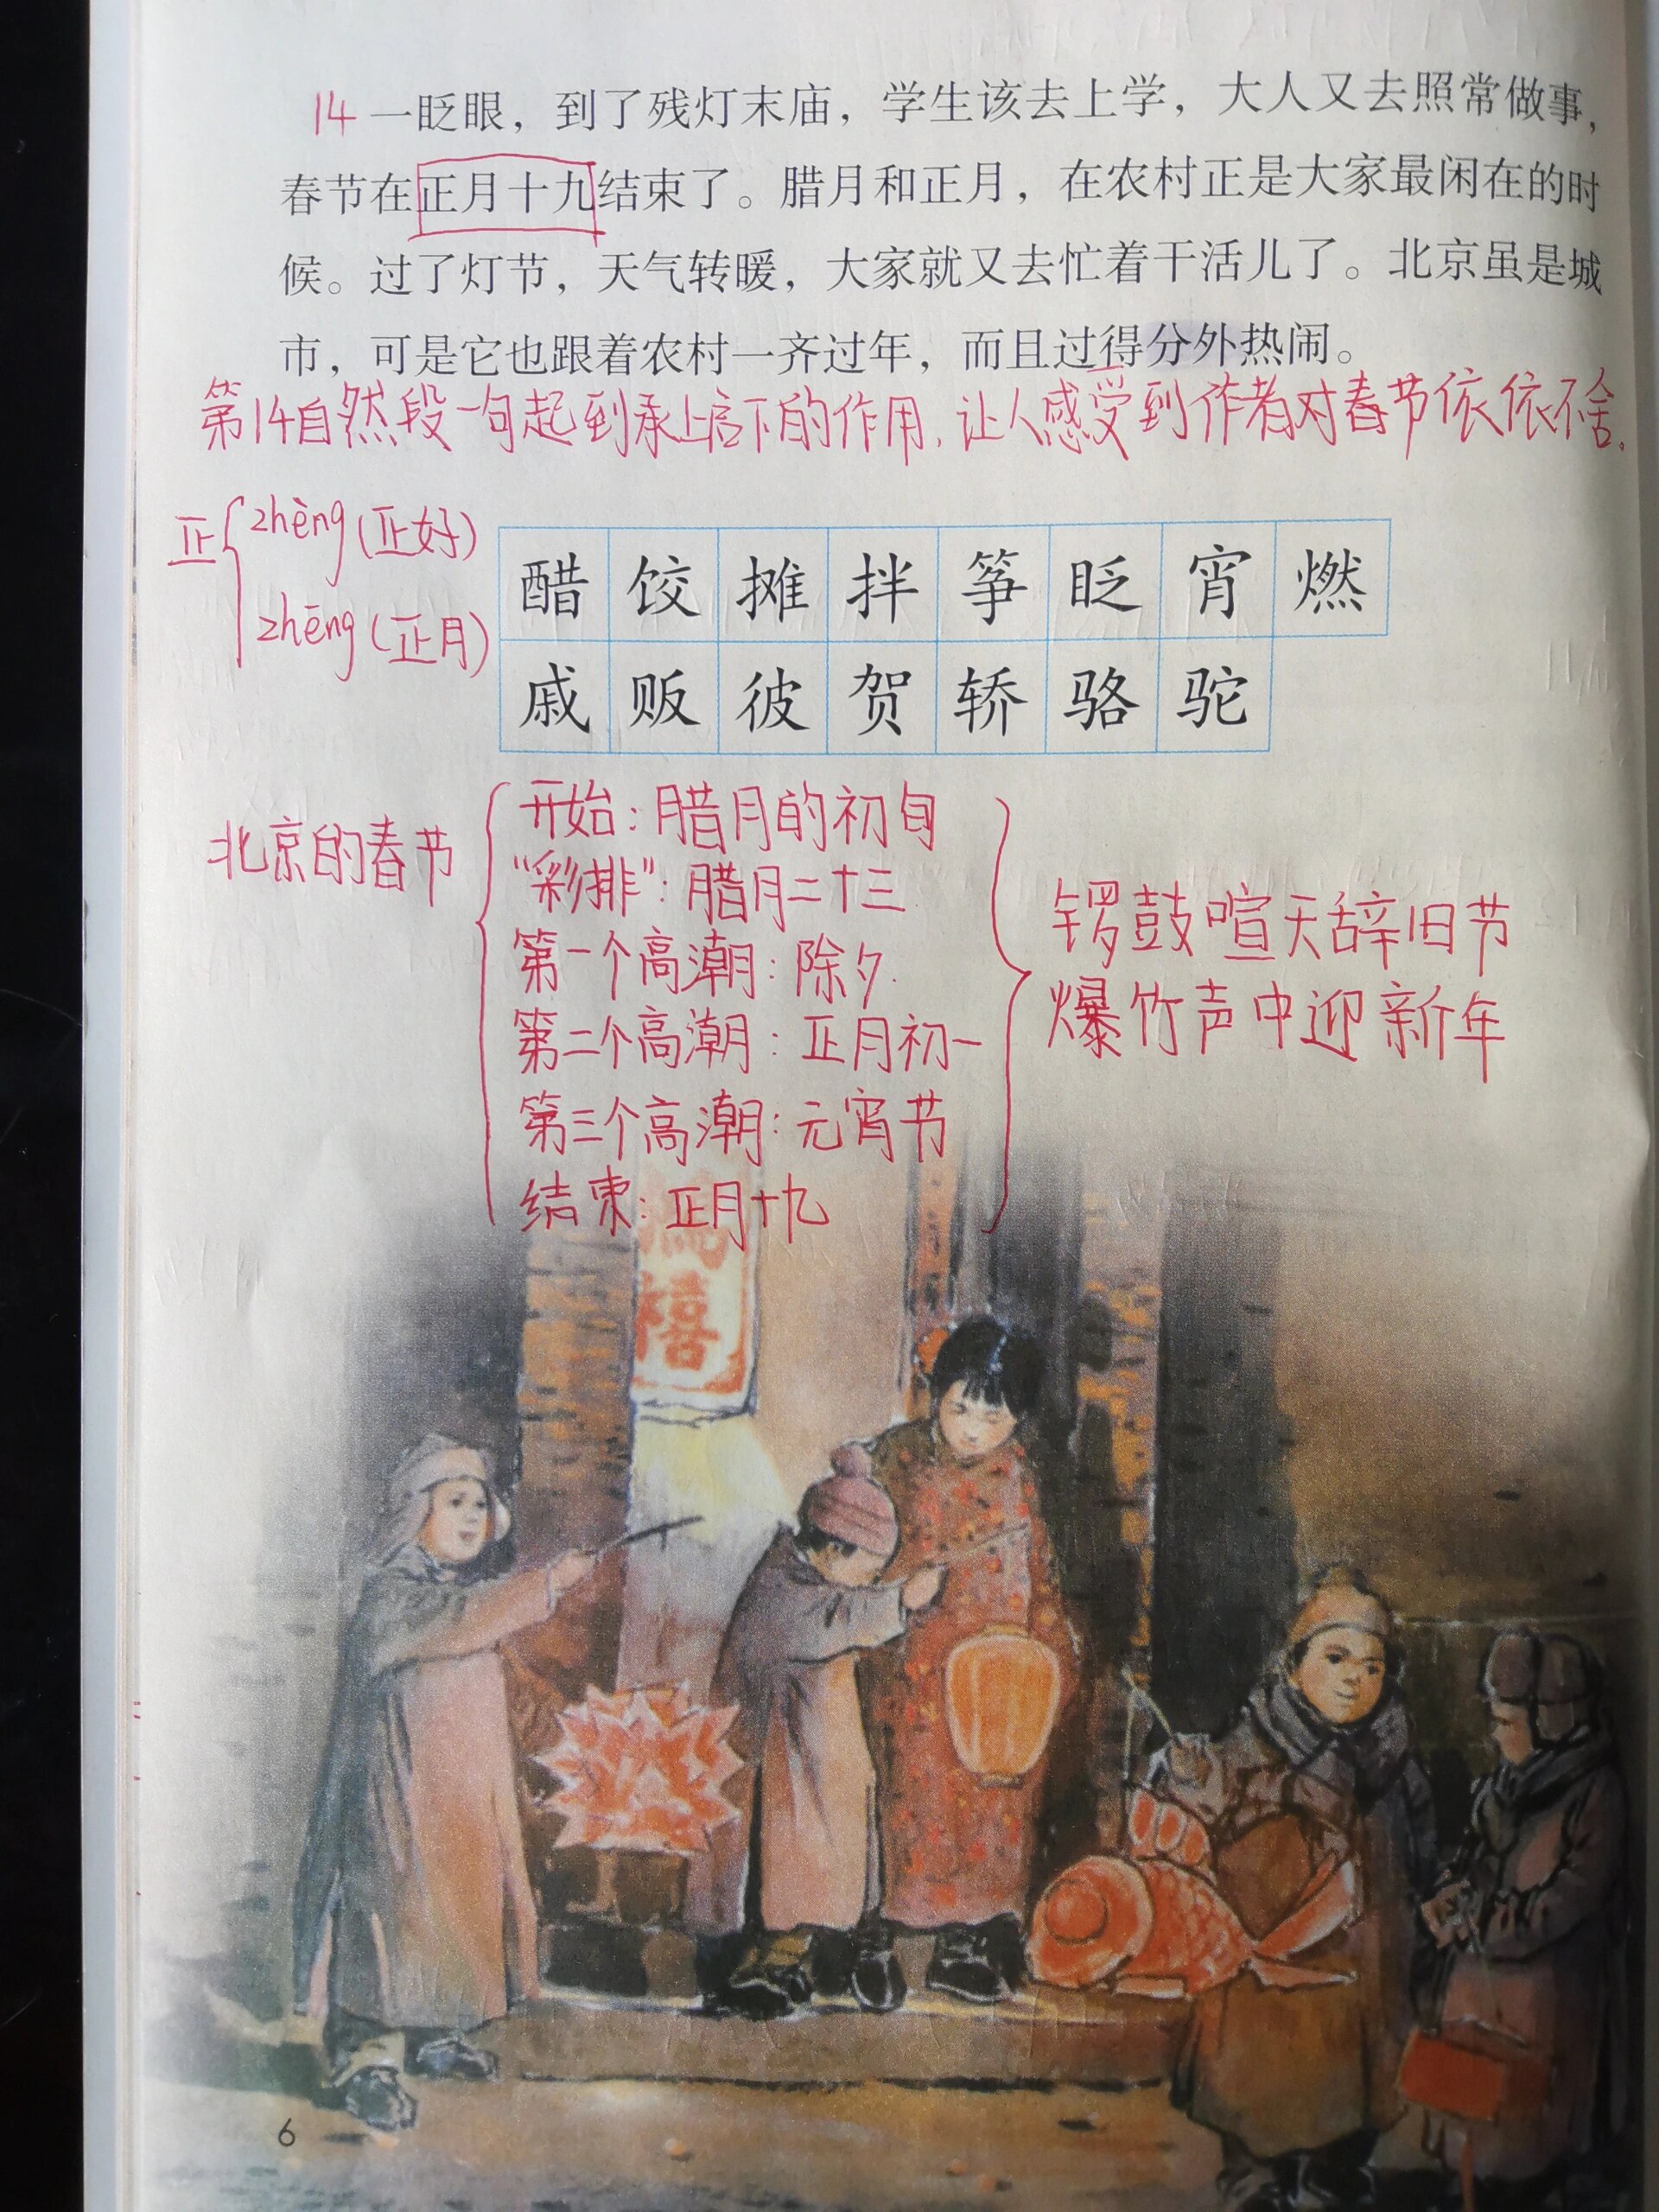 14 一眨眼，到了残灯末庙，学生该去上学，大人又去照常做事，
春节在正月十九结束了。腊月和正月，在农村正是大家最闲在的时
候。过了灯节，天气转暖，大家就又去忙着干活儿了。北京虽是城
市，可是它也跟着农村一齐过年，而且过得分外热闹。
第14自然段一句起到承上启下的作用，让人感受到作者对春节依依不舍。
正
zhèng（正好）
zhēng（正月）
醋 饺 摊 拌 筝 眨 宵 燃
戚 贩 彼 贺 轿 骆 驼
北京的春节
开始：腊月的初旬
“彩排”：腊月二十三
第一个高潮：除夕
第二个高潮：正月初一
第三个高潮：元宵节
结束：正月十九
锣鼓喧天辞旧节
爆竹声中迎新年
禧
6